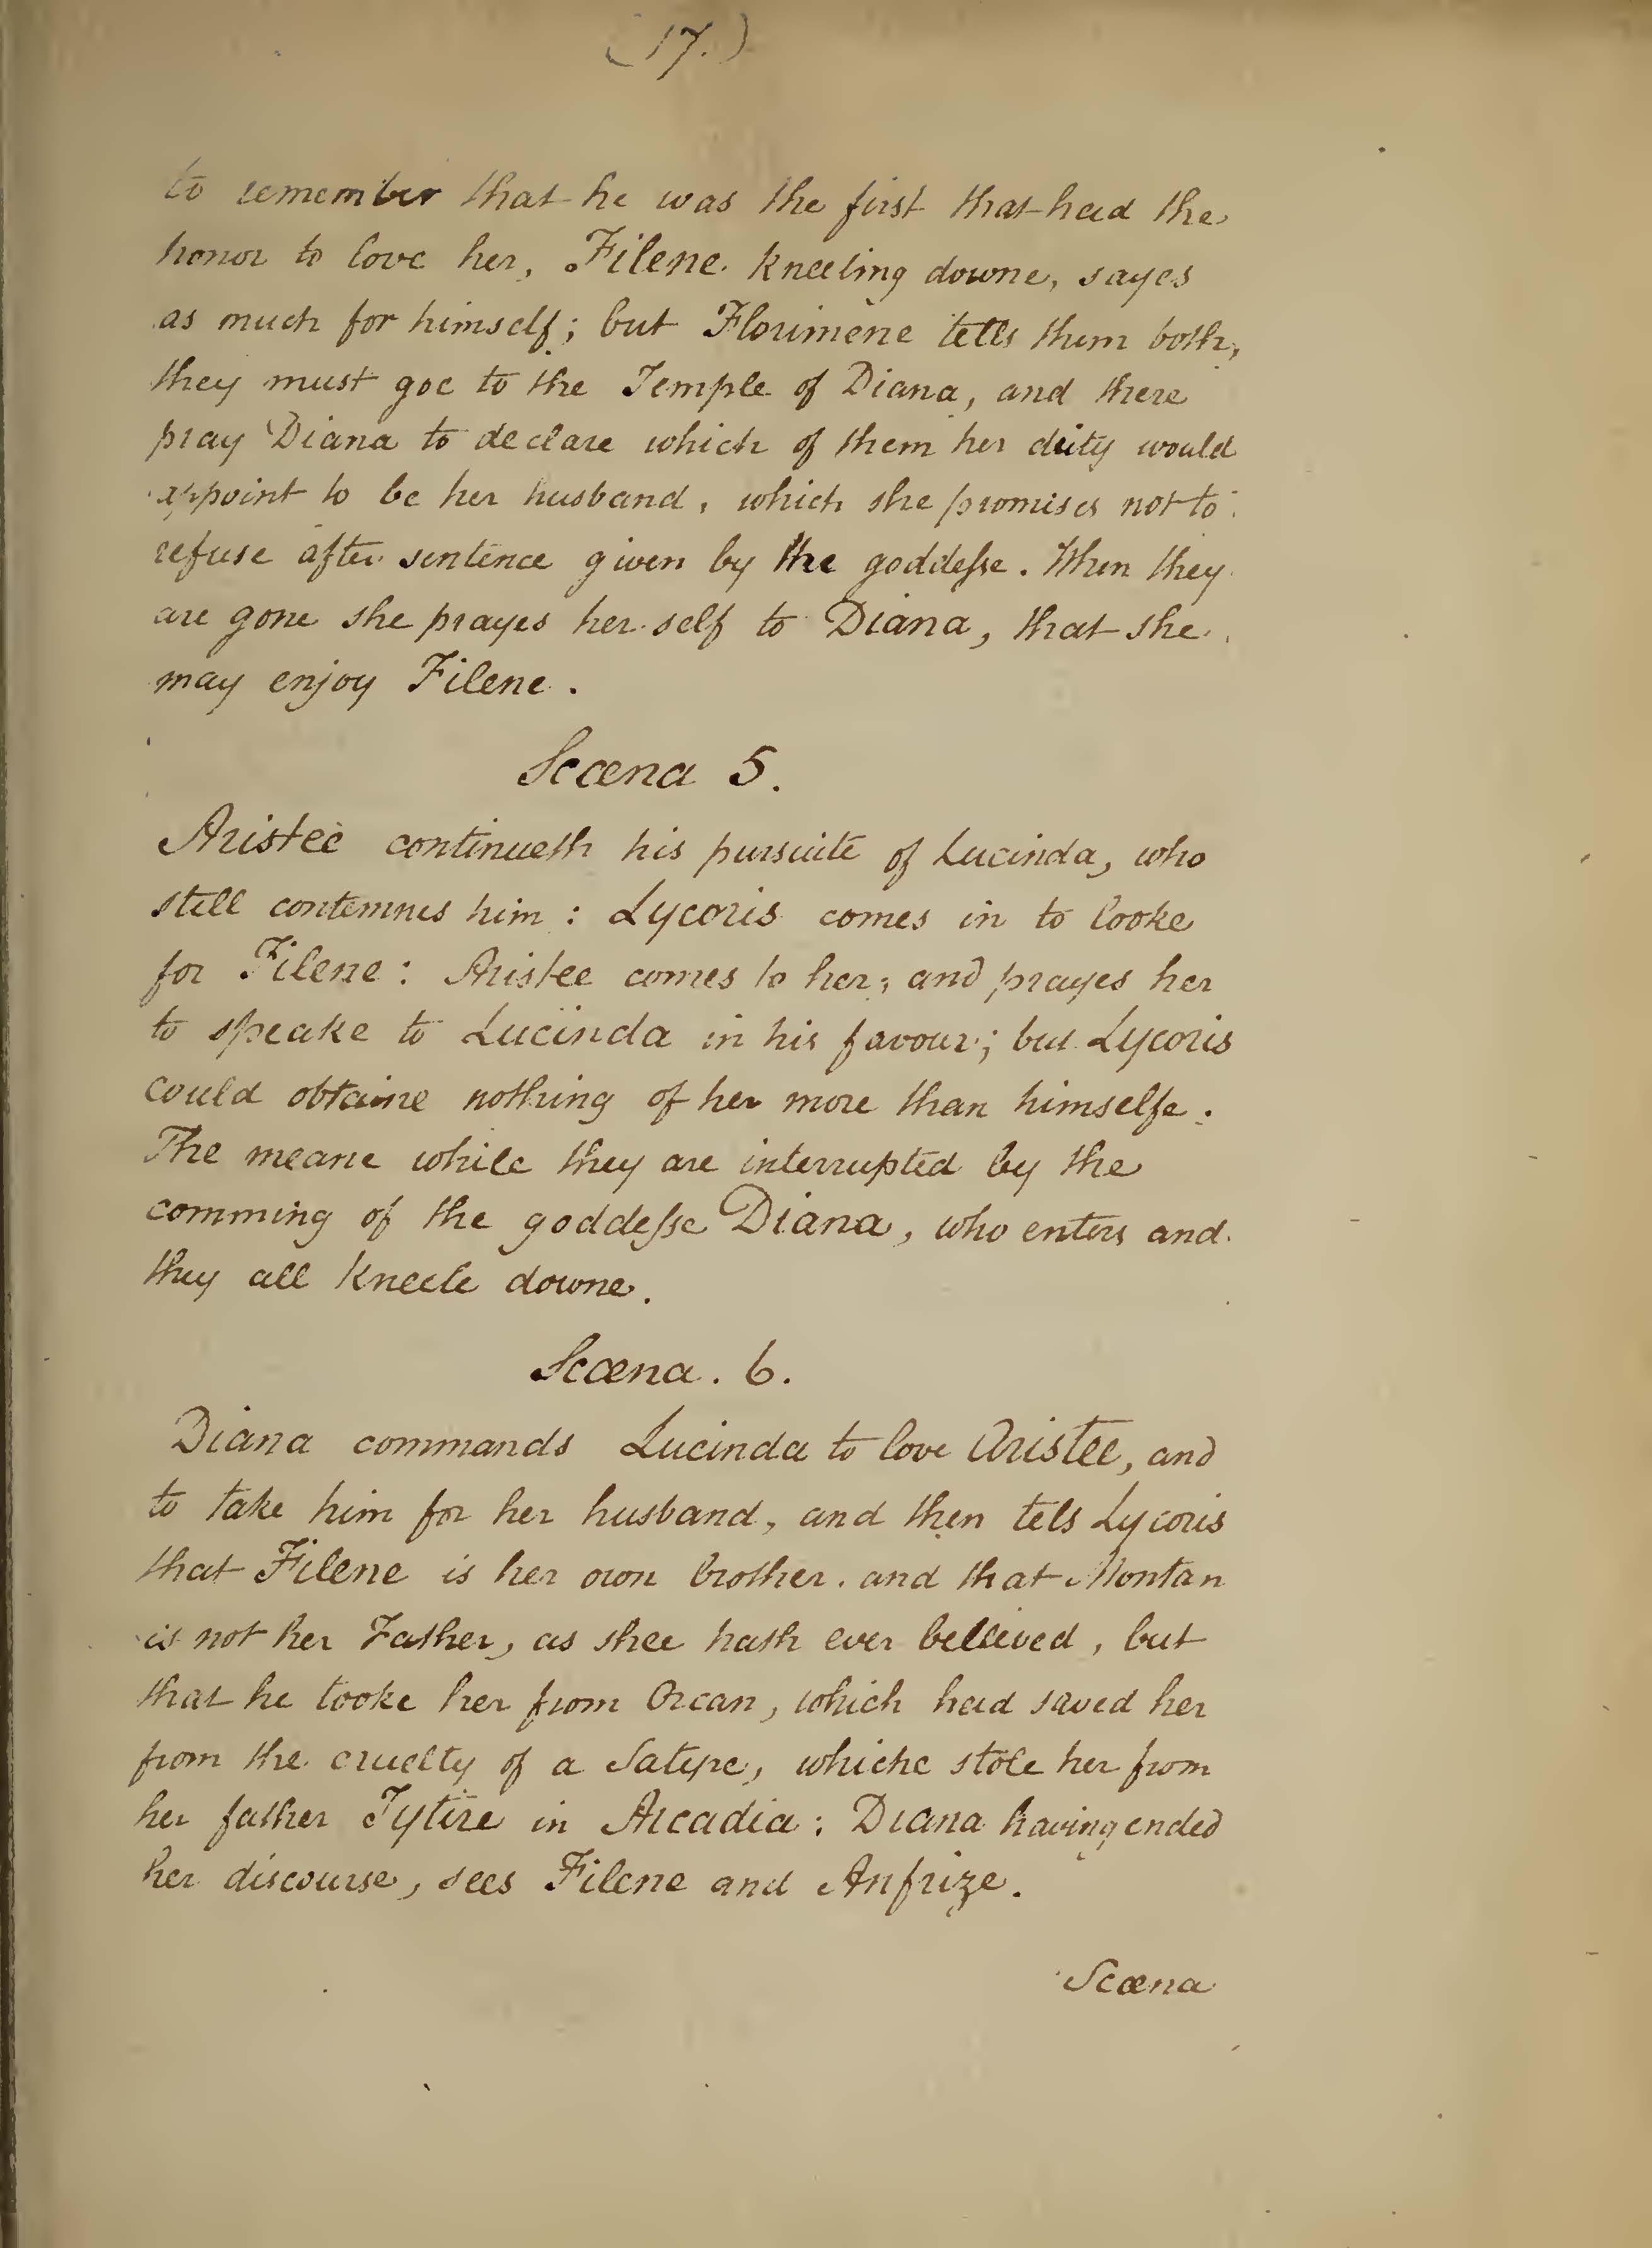 (17.)
to remember that he was the first that had the
honor to love her, Filene kneeling downe, sayes
as much for himself; but Florimene tells them both,
they must goe to the Temple of Diana, and there
pray Diana to declare which of them her deity would
appoint to be her husband, which she promises not to
refuse after sentence given by the goddesse. When they
are gone she prayes her self to Diana, that she
may enjoy Filene.
Scæna 5.
Aristee continueth his pursuite of Lucinda, who
still contemnes him: Lycoris comes in to looke
for Filene: Aristee comes to her, and prayes her
to speake to Lucinda in his favour; but Lycoris
could obtaine nothing of her more than himselfe.
The meane while they are interrupted by the
comming of the goddesse Diana, who enters and
they all kneele downe.
Scæna. 6.
Diana commands Lucinda to love Aristee, and
to take him for her husband, and then tels Lycoris
that Filene is her own brother. and that Montan
is not her Father, as shee hath ever believed, but
that he tooke her from Orcan, which had saved her
from the cruelty of a Satyre, whiche stole her from
her father Tytire in Arcadia: Diana having ended
her discourse, sees Filene and Anfrize.
Scæna